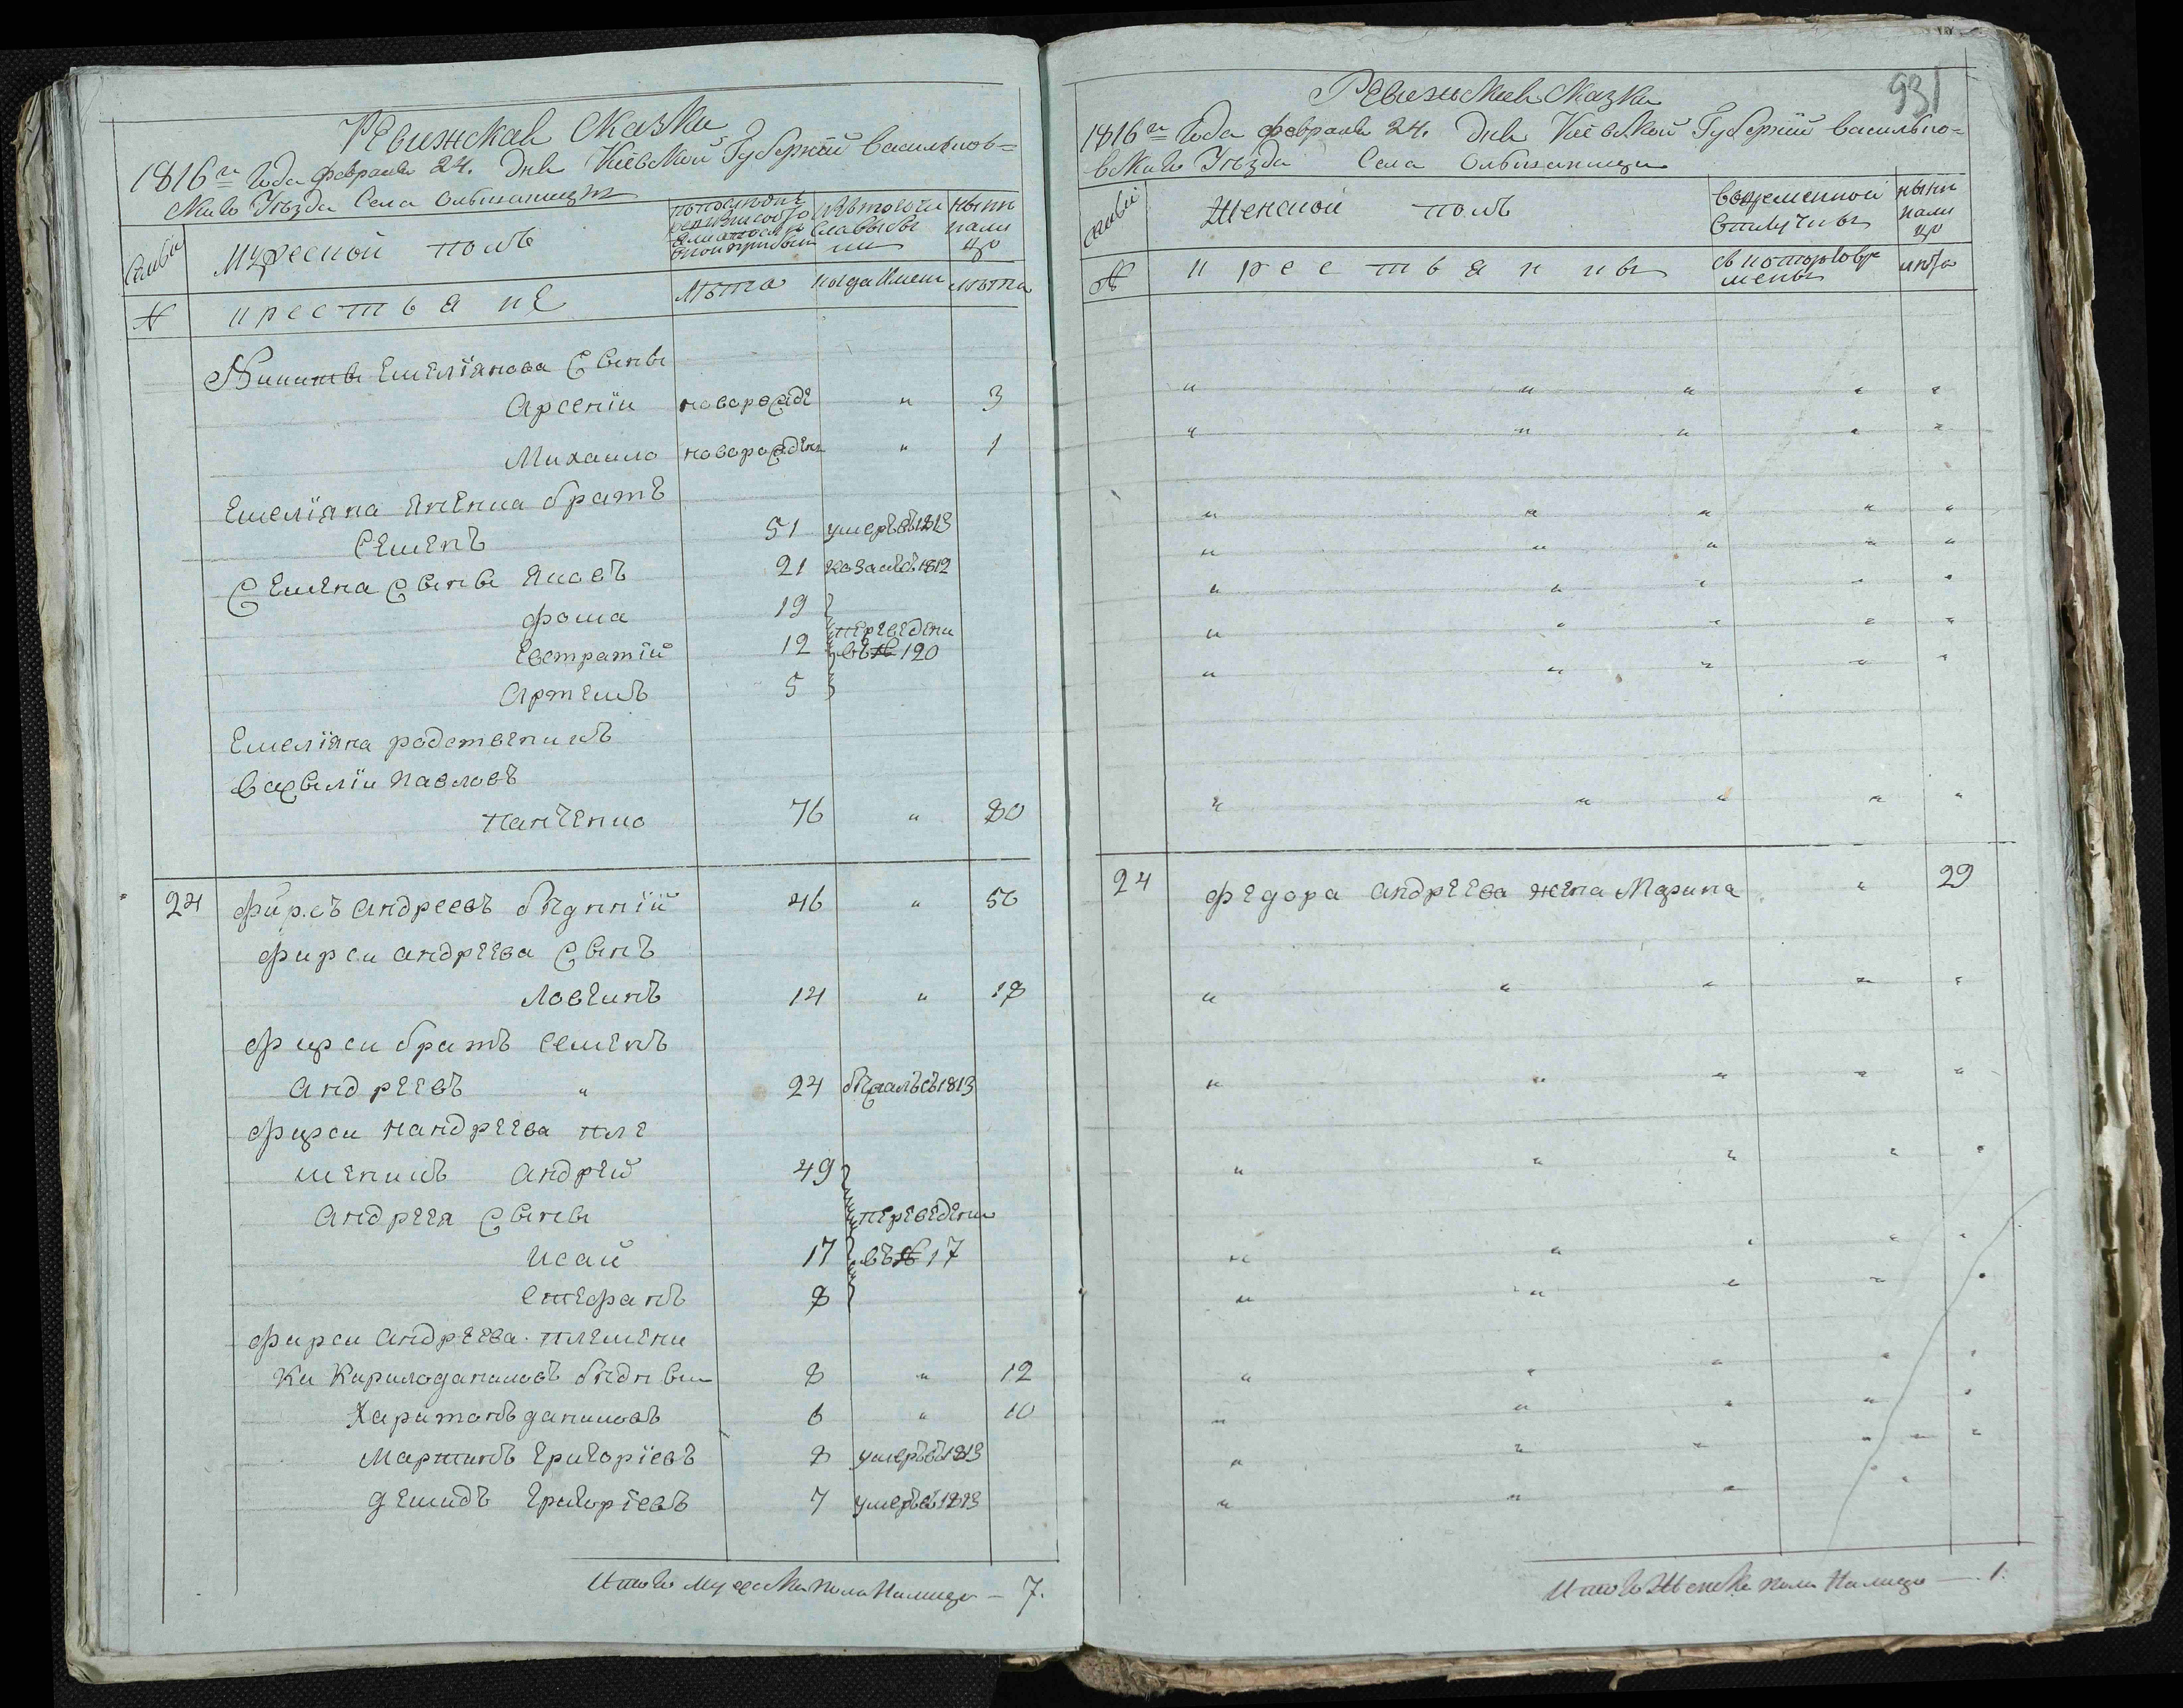 Ревижская Сказка
1816го Года февраля 24. Дня Киевской Губернии васильков=
скаго Уезда Села ольшаницы
семьи
мужеской полъ
по последней ревизии состояло или после оной прибыли
изъ того числа выбыли
ныне налицо
№
крестьяне
лета
когда именно
лета
Никиты Емелїянова Сыны
Арсенїи новорожде " 3
Михаило новорожденъ " 1
Емелїяна братъ
Семенъ 51 умеръ въ 1813
Семена Сыны Яковъ 21 въ 1812
фома 19
Евстратїй 12 переведени въ № 120
Артемъ 5
Емелїяна родственикъ
Василїи Павловъ
Панченко 76 " 80
24 фирсъ андреевъ бедннїй 46 " 50
фирси андреева Сынъ
Логвинъ 14 " 18
фирси братъ семенъ
андреевъ " 24 бежалъ въ 1813
фирси андреева пле
меникъ андрей 49
андрея Сыны переведени
исай 17 въ № 17
стефанъ 8
фирси андреева племени
ки Кирило даниловъ бедны 8 " 12
Харитонъ даниловъ 6 " 10
Мартинъ григорїевъ 8 умеръ въ 1813
демидъ григорїевъ 7 умеръ въ 1813
Итого мужеска пола Налицо — 7.
931
Ревижская Сказка
1816го Года февраля 24. Дня Киевской Губернии василько=
вскаго Уезда Села ольшаницы
семьи
Женской полъ
во временной отлучкы
ныне налицо
№
крестьянкы
съ котораго времены
лета
24 федора андреева жена Марина " 29
Итого Женска пола Налицо — 1.